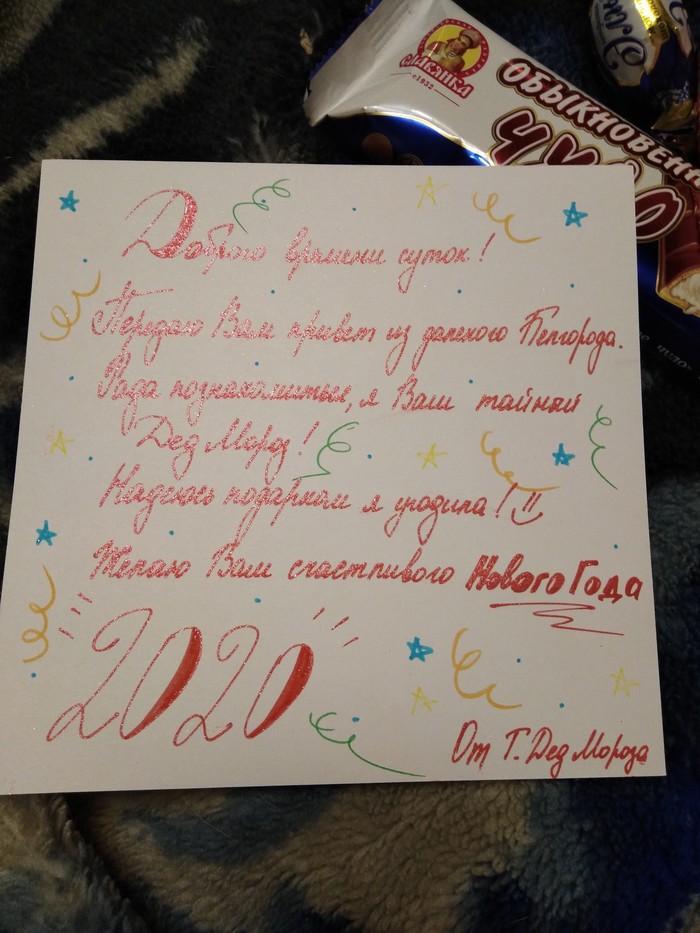 СЛАВЯНКА
с 1932
ОБЫКНОВЕНН
ЧУДО
Доброго времени суток!
Передаю Вам привет из далекого Белгорода.
Рада познакомиться, я Ваш тайный
Дед Мороз!
Надеюсь подарком я угодила!
Желаю Вам счастливого Нового Года
2020
От Т. Дед Мороза